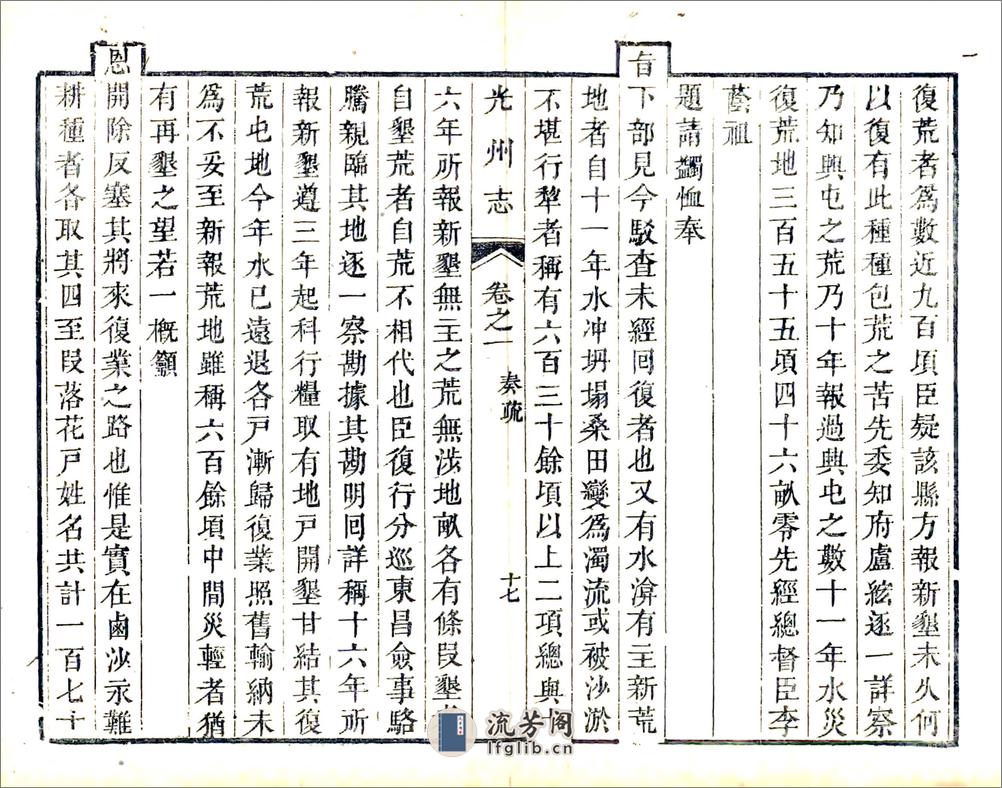 復荒者爲數近九百頃臣疑該縣方報新墾未久何
以復有此種種包荒之苦先委知府盧綋逐一詳察
乃知興屯之荒乃十年報過興屯之數十一年水災
復荒地三百五十五頃四十六畝零先經總督臣李
藝祖
題請蠲恤奉
旨下部見今駁查未經回復者也又有水渰有主新荒
地者自十一年水冲坍塌桑田變爲濁流或被沙淤
不堪行犂者稱有六百三十餘頃以上二項總與十
光州志 卷之一 奏疏 十七
六年所報新墾無主之荒無涉地畝各有條段墾
自墾荒者自荒不相代也臣復行分巡東昌僉事駱
騰親臨其地逐一察勘據其勘明回詳稱十六年所
報新墾遵三年起科行糧取有地戸開墾甘結其復
荒屯地今年水已遠退各戸漸歸復業照舊輸納未
爲不妥至新報荒地雖稱六百餘頃中間災輕者猶
有再墾之望若一槪籲
恩開除反塞其將來復業之路也惟是實在鹵沙永難
耕種者各取其四至段落花戸姓名共計一百七十
流芳阁
lfglib.cn